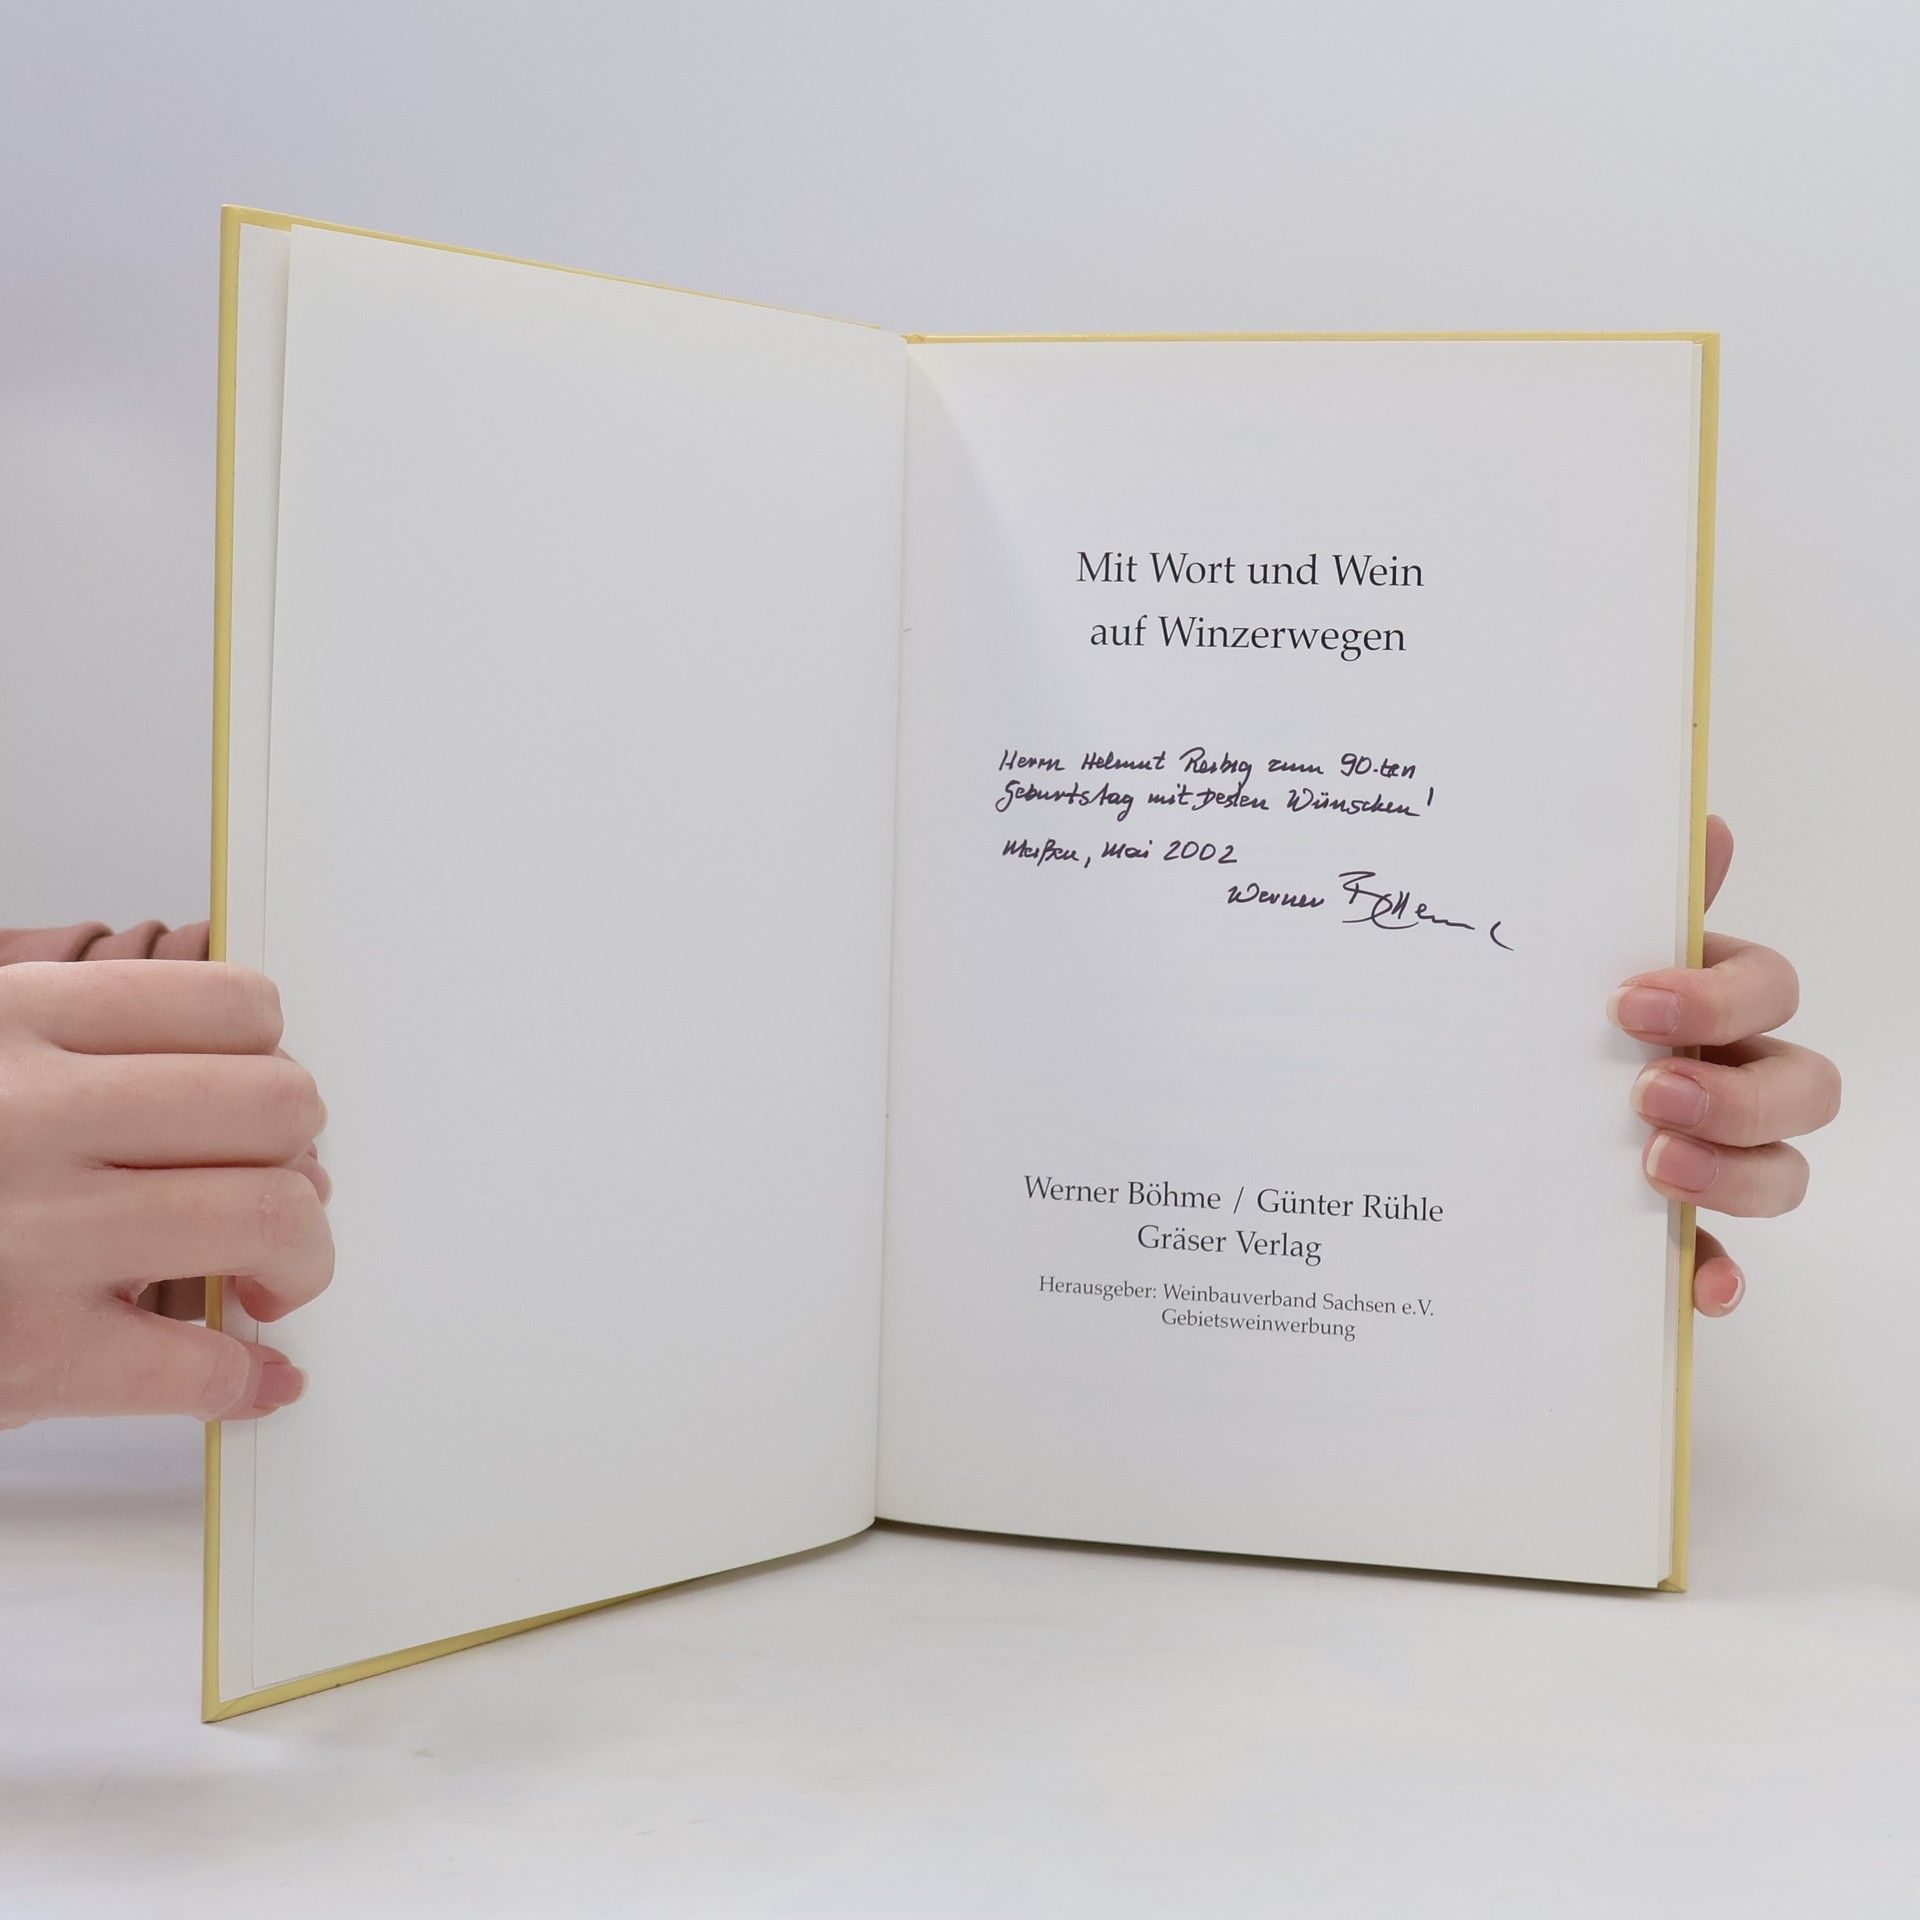 Mit Wort und Wein
auf Winzerwegen
Herrn Helmut zum 90.ten
Geburtstag mit besten Wünschen!
Meißen, Mai 2002
Werner Böhme
Werner Böhme / Günter Rühle
Gräser Verlag
Herausgeber: Weinbauverband Sachsen e.V.
Gebietsweinwerbung